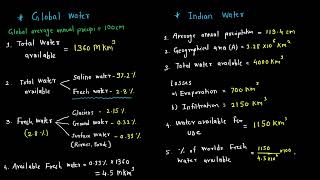 * Global Water
Global average annual precipi = 100cm
1. Total Water available = 1360 M Km³
2. Total Water available
Saline water - 97.2 %
Fresh water - 2.8 %
3. Fresh Water (2.8 %)
Glaciers - 2.15 %
Ground water - 0.32 %
Surface water - 0.33 %
(Rivers, Pond)
4. Available Fresh water = 0.33% * 1360
= 4.5 MKm³
* Indian Water
1. Average annual precipitation = 119.4 cm
2. Geographical area (A) = 3.28 x10⁶ Km²
3. Total Water available = 4000 Km³
Losses
a) Evaporation = 700 Km³
b) Infiltration = 2150 Km³
4. Water available for use = 1150 Km³
5. % of Worlds Fresh Water available = 1150 / 4.5 x10⁶ x100